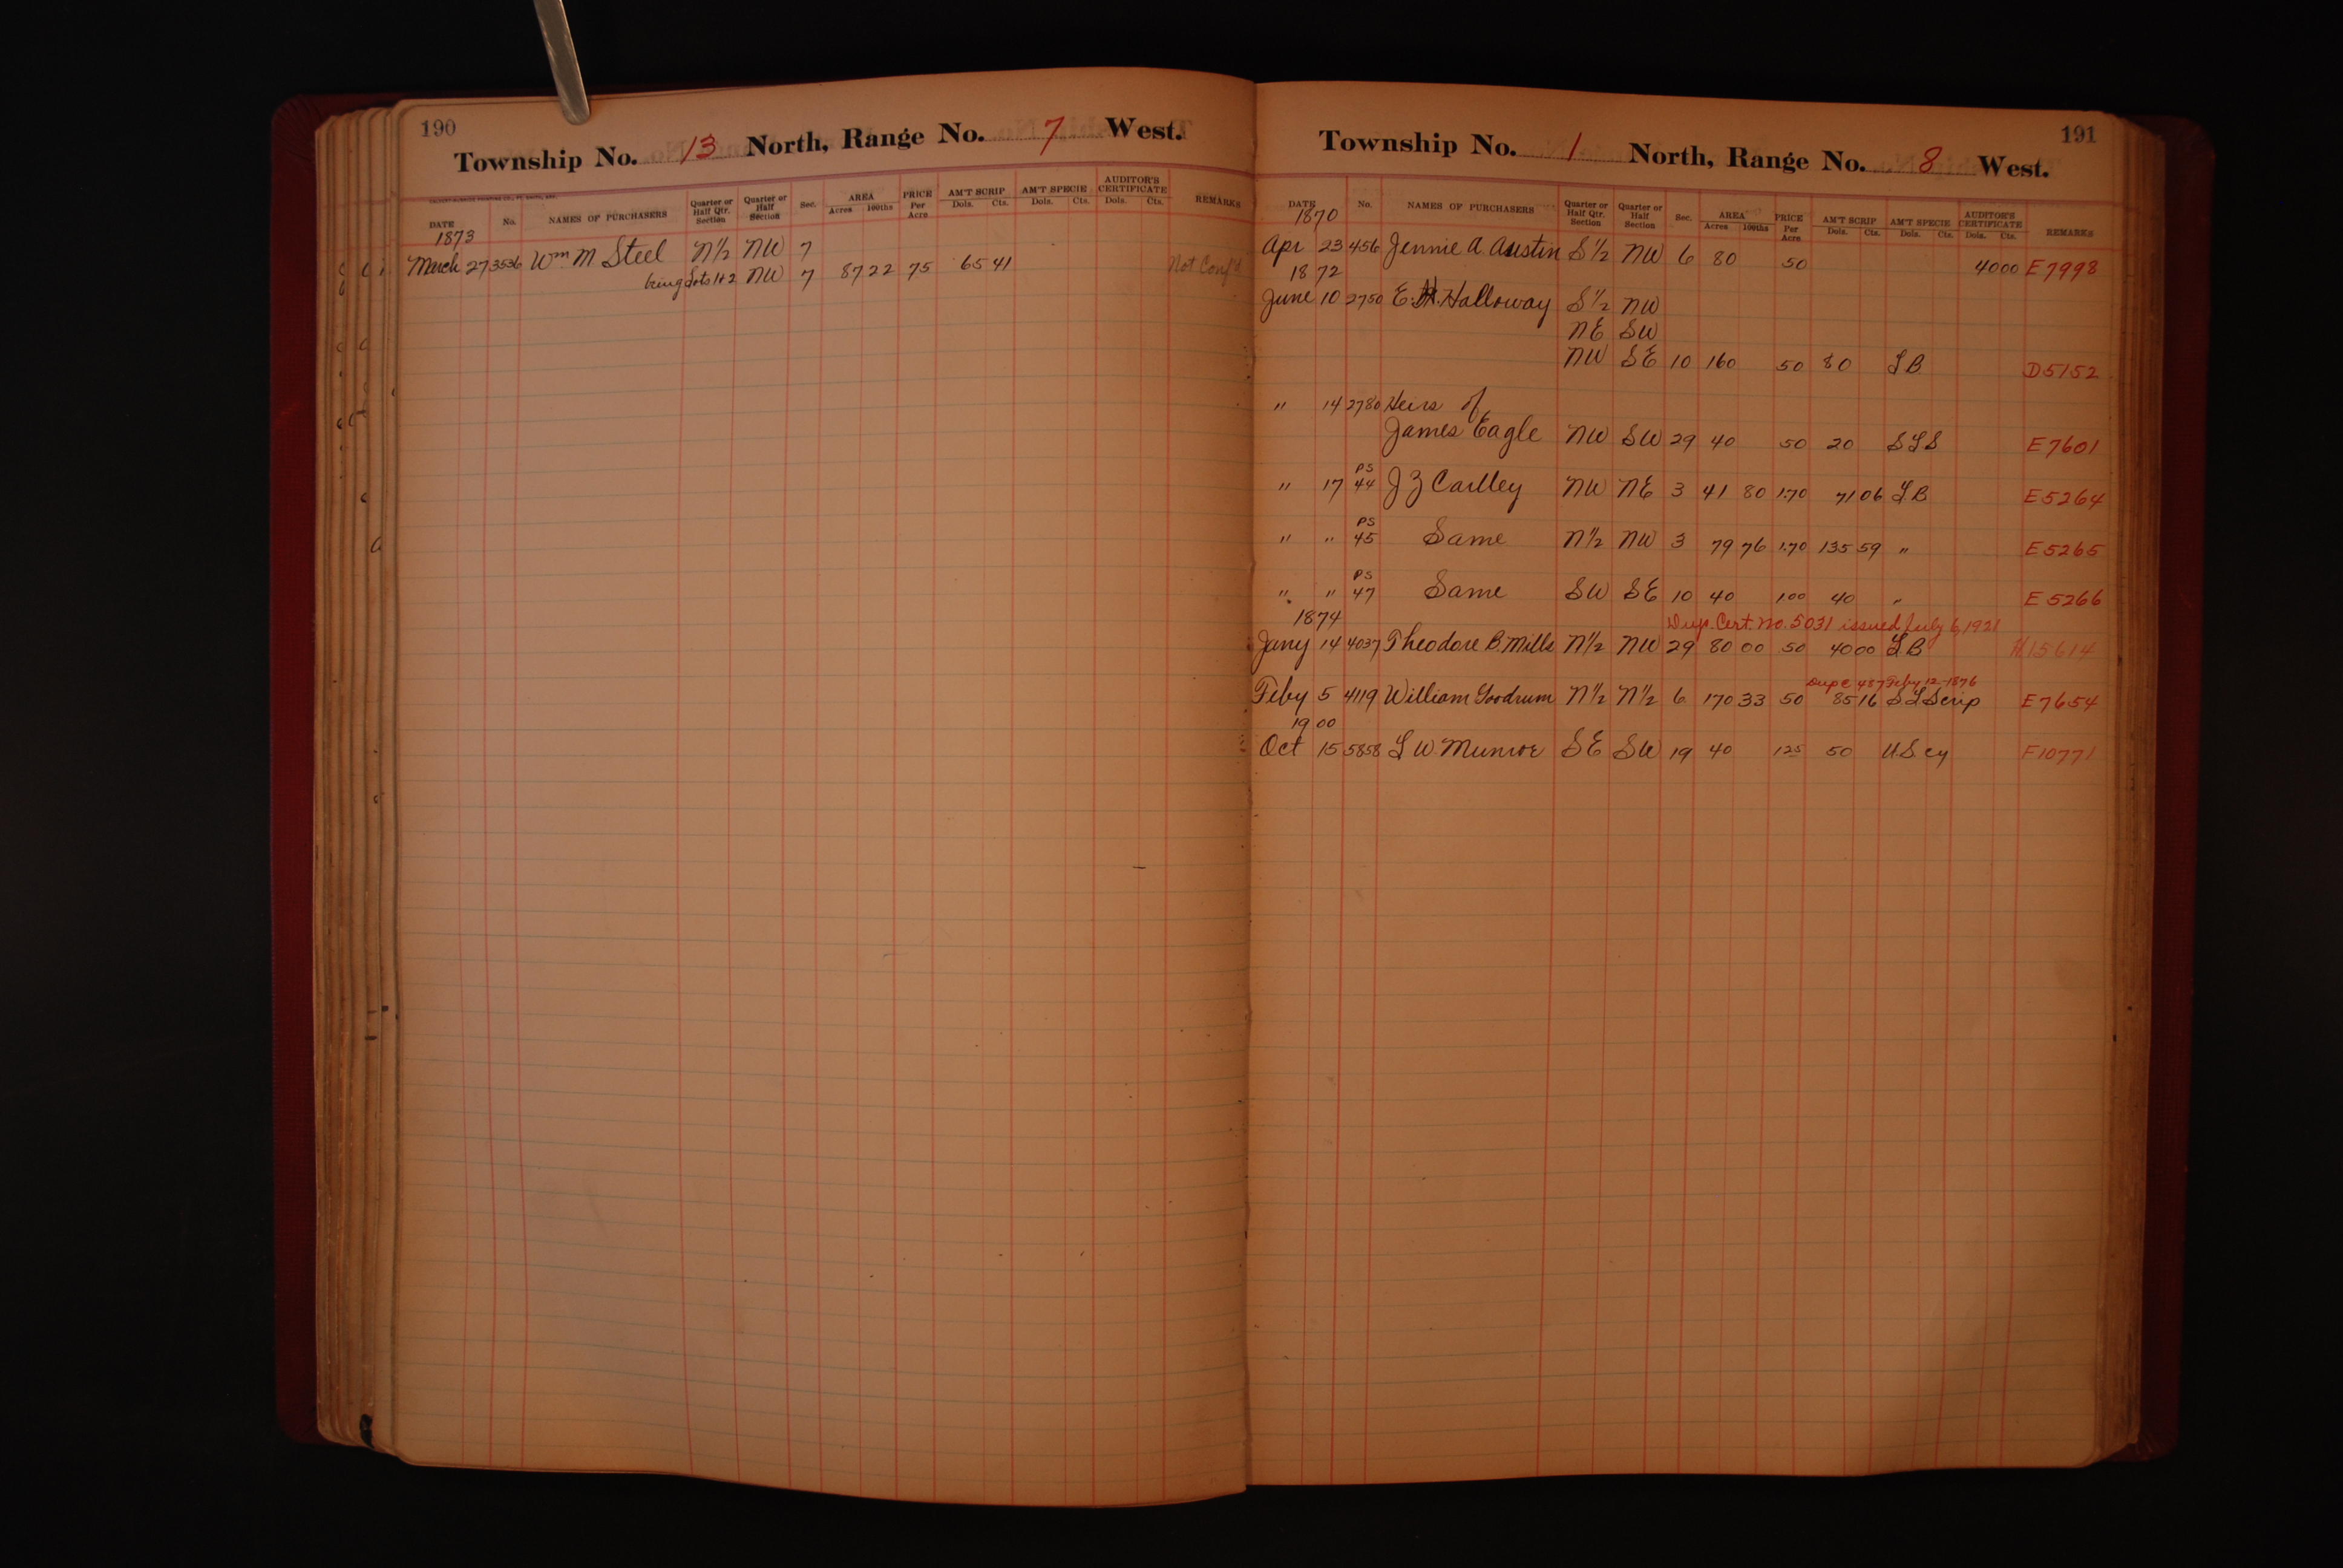 190
Township No. 13 North, Range No. 7 West.
DATE No. NAMES OF PURCHASERS Quarter or Half Qtr. Section Quarter or Half Section Sec. AREA Acres 100ths PRICE Per Acre AM'T SCRIP Dols. Cts. AM'T SPECIE Dols. Cts. AUDITOR'S CERTIFICATE Dols. Cts. REMARKS
1873
March 27 3536 Wm M Steel N½ NW 7
being Lots 1+2 NW 7 87 22 75 65 41 Not Conf'd
191
Township No. 1 North, Range No. 8 West.
DATE No. NAMES OF PURCHASERS Quarter or Half Qtr. Section Quarter or Half Section Sec. AREA Acres 100ths PRICE Per Acre AM'T SCRIP Dols. Cts. AM'T SPECIE Dols. Cts. AUDITOR'S CERTIFICATE Dols. Cts. REMARKS
1870
Apr 23 456 Jennie A Austin S½ NW 6 80 50 40 00 E7998
1872
June 10 2750 E. H. Halloway S½ NW
NE SW
NW SE 10 160 50 80 LB D5152
" 14 2780 Heirs of
James Eagle NW SW 29 40 50 20 SLS E7601
" 17 PS 44 J Z Carlley NW NE 3 41 80 1.70 71 06 LB E5264
" " PS 45 Same N½ NW 3 79 76 1.70 135 59 " E5265
" " PS 47 Same SW SE 10 40 1 00 40 " E5266
1874 Dup. Cert. No. 5031 issued July 6, 1921
Jany 14 4037 Theodore B. Mills N½ NW 29 80 00 50 40 00 LB H15614
Dup C 487 Feby 12-1876
Feby 5 4119 William Goodrum N½ N½ 6 170 33 50 85 16 SLScrip E7654
1900
Oct 15 5858 L W Munroe SE SW 19 40 1 25 50 U.S. cy F10771